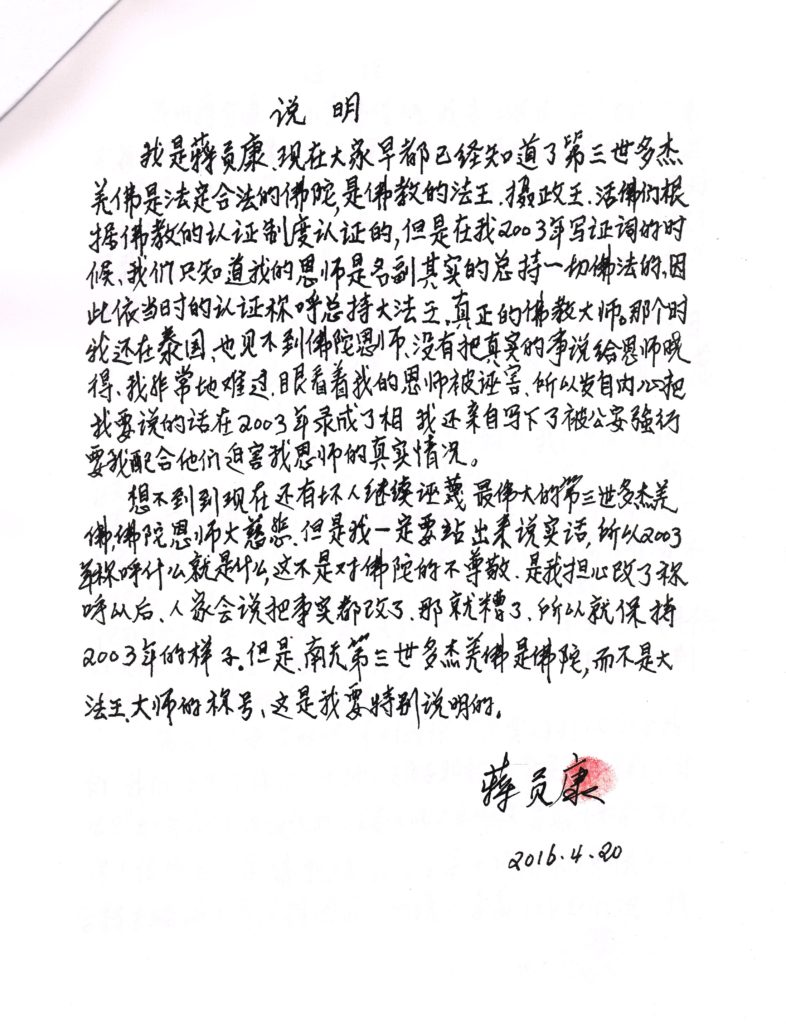 说 明
我是蒋员康、现在大家早都已经知道了第三世多杰
羌佛是法定合法的佛陀,是佛教的法王、摄政王、活佛们根
据佛教的认证制度认证的,但是在我2003年写证词的时
候、我们只知道我的恩师是名副其实的总持一切佛法的,因
此依当时的认证称呼总持大法王、真正的佛教大师。那个时
我还在泰国、也见不到佛陀恩师、没有把真实的事说给恩师晓
得、我非常地难过、眼看着我的恩师被诬害、所以发自内心把
我要说的话在2003年录成了相 我还亲自写下了被公安强行
要我配合他们迫害我恩师的真实情况。
想不到到现在还有坏人继续诬蔑 最伟大的第三世多杰羌
佛,佛陀恩师大慈悲、但是我一定要站出来说实话,所以2003
年称呼什么就是什么,这不是对佛陀的不尊敬、是我担心改了称
呼以后、人家会说把事实都改了、那就糟了、所以就保持
2003年的样子。但是、南无第三世多杰羌佛是佛陀,而不是大
法王、大师的称号、这是我要特别说明的。
蒋员康
2016.4.20